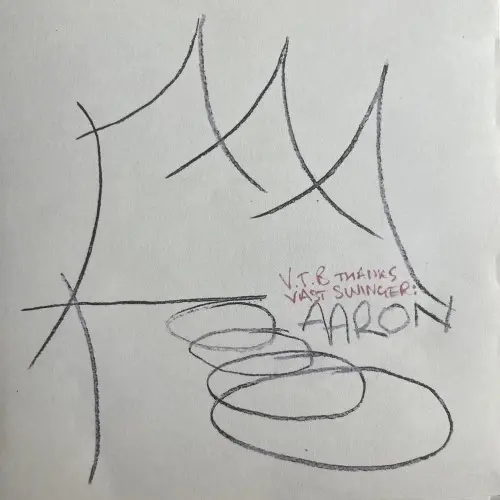 V.T.B THANKS
VAST SWINGER:
AARON